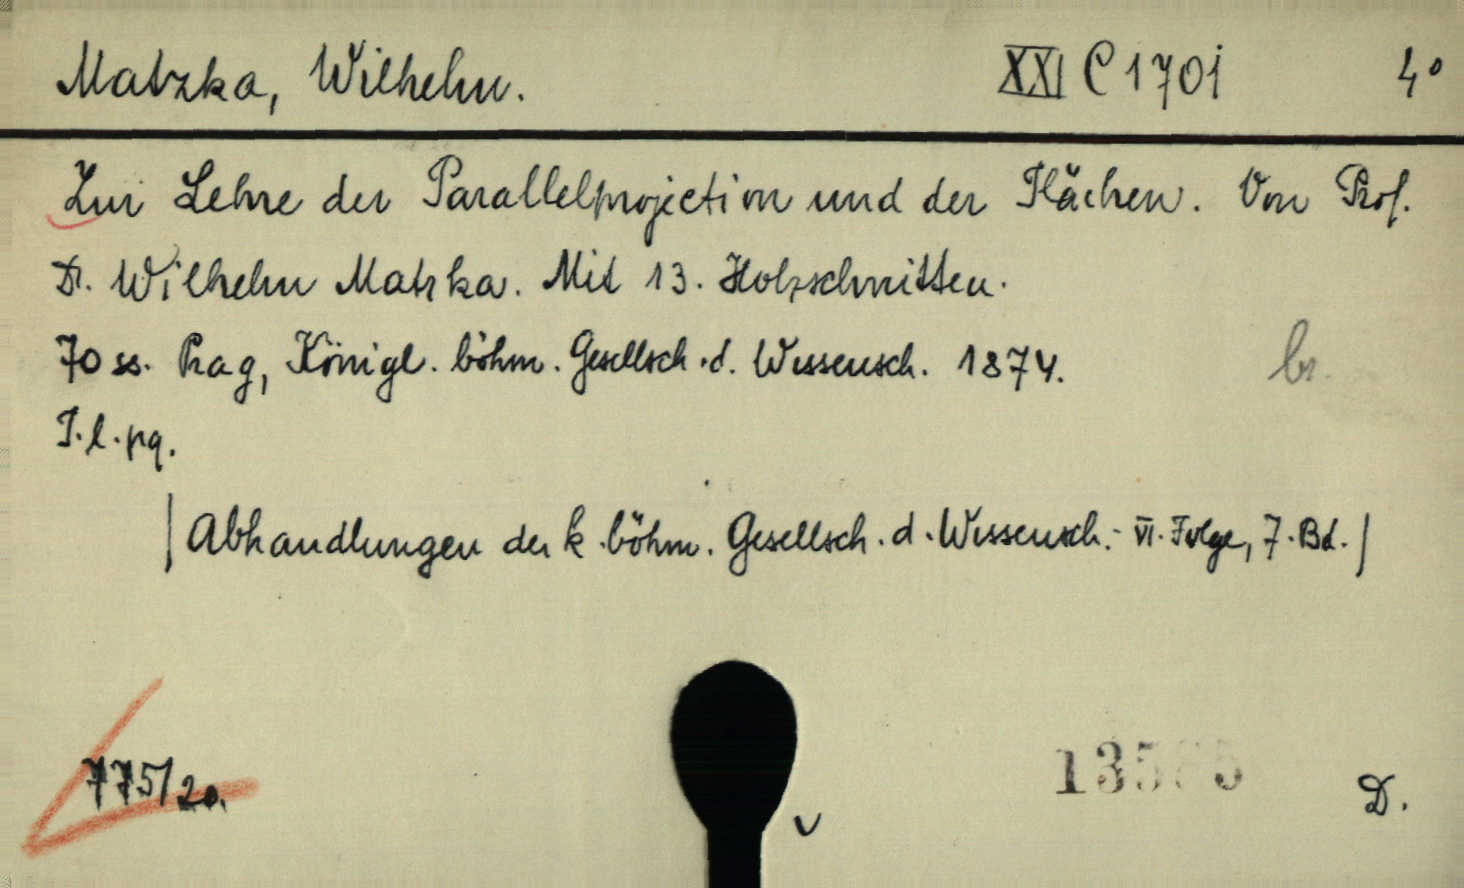 Matzka, Wilhelm. XXI C 1701 4°
Zur Lehre der Parallelprojection und der Flächen. Von Prof.
Dr. Wilhelm Matzka. Mit 13. Holzschnitten.
70 ss. Prag, Königl. böhm. Gesellsch. d. Wissensch. 1874. br.
T. l. pg.
| Abhandlungen der k. böhm. Gesellsch. d. Wissensch. - VI. Folge, 7. Bd. |
775/20.
D.